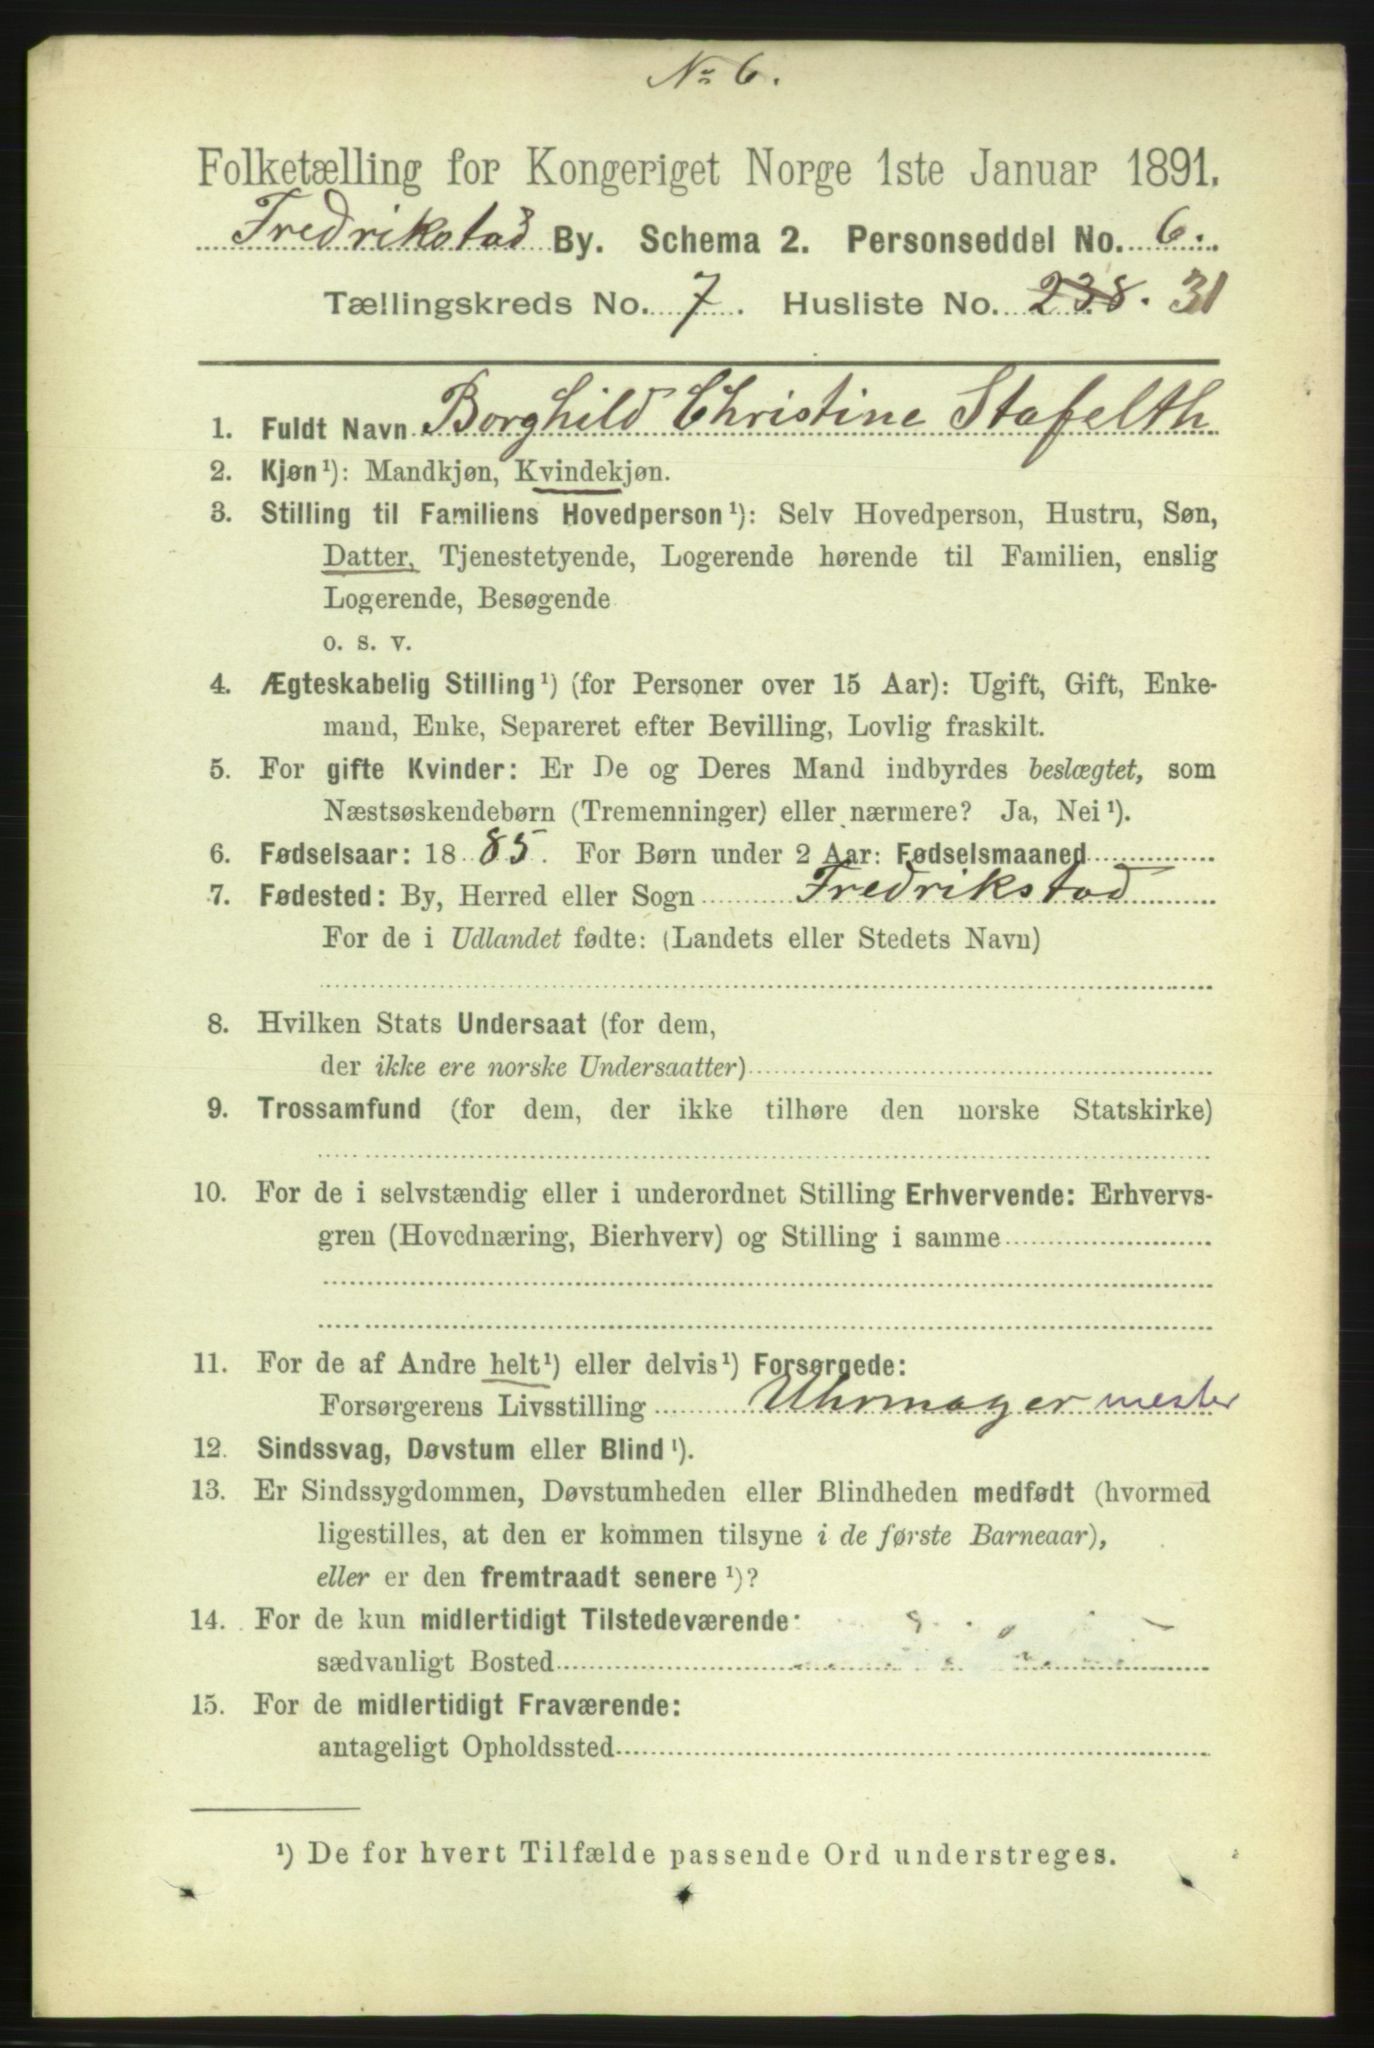 No 6.
Folketælling for Kongeriget Norge 1ste Januar 1891.
Fredrikstad By. Schema 2. Personseddel No. 6.
Tællingskreds No. 7. Husliste No. 238. 31
1. Fuldt Navn Borghild Christine Stafelth
2. Kjøn¹): Mandkjøn, Kvindekjøn.
3. Stilling til Familiens Hovedperson¹): Selv Hovedperson, Hustru, Søn,
Datter, Tjenestetyende, Logerende hørende til Familien, enslig
Logerende, Besøgende
o. s. v.
4. Ægteskabelig Stilling¹) (for Personer over 15 Aar): Ugift, Gift, Enke-
mand, Enke, Separeret efter Bevilling, Lovlig fraskilt.
5. For gifte Kvinder: Er De og Deres Mand indbyrdes beslægtet, som
Næstsøskendebørn (Tremenninger) eller nærmere? Ja, Nei¹).
6. Fødselsaar: 1885. For Børn under 2 Aar: Fødselsmaaned
7. Fødested: By, Herred eller Sogn Fredrikstad
For de i Udlandet fødte: (Landets eller Stedets Navn)
8. Hvilken Stats Undersaat (for dem,
der ikke ere norske Undersaatter)
9. Trossamfund (for dem, der ikke tilhøre den norske Statskirke)
10. For de i selvstændig eller i underordnet Stilling Erhvervende: Erhvervs-
gren (Hovednæring, Bierhverv) og Stilling i samme
11. For de af Andre helt¹) eller delvis¹) Forsørgede:
Forsørgerens Livsstilling Uhrmager mester
12. Sindssvag, Døvstum eller Blind¹).
13. Er Sindssygdommen, Døvstumheden eller Blindheden medfødt (hvormed
ligestilles, at den er kommen tilsyne i de første Barneaar),
eller er den fremtraadt senere¹)?
14. For de kun midlertidigt Tilstedeværende:
sædvanligt Bosted
15. For de midlertidigt Fraværende:
antageligt Opholdssted
¹) De for hvert Tilfælde passende Ord understreges.